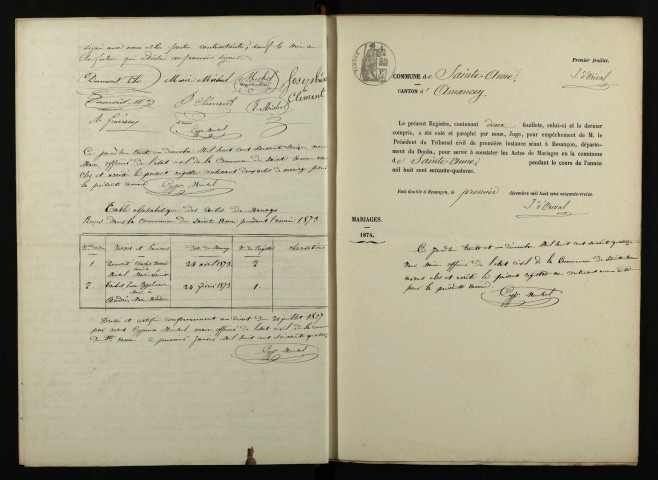 signé avec nous et les parties contractantes, sauf la mère de
la future qui a déclaré ne pouvoir signer
Dumont Ch. Marie Michel Michel Joséphine
P. Clément F. Michel Clément
Cyp. Michel
Ce jourd'hui trente un décembre Mil huit cent soixante treize nous
Maire officier de l'état civil de la Commune de Sainte Anne avons
clos et arrêté le présent registre contenant deux actes de mariage pour
la présente année Cyp. Michel
Table alphabétique des actes de Mariage
Reçus dans la commune de Sainte Anne pendant l'année 1873
Noms et Prénoms
1
24 avril 1873
2
Michel Marie
2
24 Juin 1873
1
Dressé et certifié conformément au décret du 20 juillet 1807
par nous Cyprien Michel maire officier de l'état civil de la commune
de Ste Anne le premier Janvier Mil huit cent soixante quatorze
Cyp. Michel
Premier feuillet.
J. d'Orival
COMMUNE de Sainte-Anne
CANTON d'Amancey
Le présent Registre, contenant deux feuillets, celui-ci et le dernier
compris, a été coté et paraphé par nous, Juge, pour empêchement de M. le
Président du Tribunal civil de première instance séant à Besançon, départe-
ment du Doubs, pour servir à constater les Actes de Mariages en la commune
de Sainte-Anne pendant le cours de l'année
mil huit cent soixante-quatorze.
Fait double à Besançon, le premier décembre mil huit cent soixante-treize.
J. d'Orival
MARIAGES.
1874.
Ce jourd'hui trente et un décembre Mil huit cent soixante quatorze
Nous Maire officier de l'état civil de la Commune de Sainte Anne
avons clos et arrêté le présent registre ne contenant aucun acte
pour la présente année
Cyp. Michel